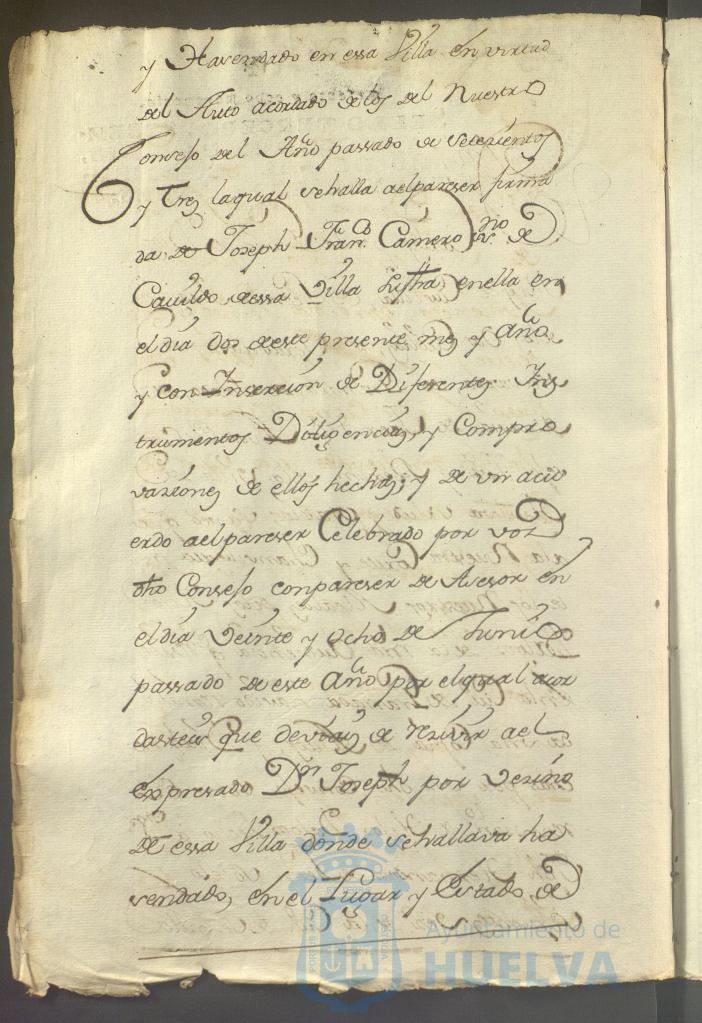 y Havendado en essa Villa en virtud
del Auto acordado de los del Nuestro
Consejo del Año passado de Setezientos
y Tres laqual sehalla aelpareser firma
da de Joseph Fran.co Camero no de
Cavildo de essa Villa su fha enella en
el dia dos de este presente mes y año
y con Inserzion de Diferentes Ins
trumentos Diligencias, y Compro
vaziones de ellos hechas; y de vn acu
erdo aelpareser Celebrado por vos
dho Consejo conpareser de Asesor en
el dia Veinte y ocho de Junio
passado de este Año por elqual acor
dasteis que deviais de rezivir ael
expresado Dn Joseph por vezino
de essa Villa donde sehallava ha
vendado, en el Lugar y Estado de
Ayuntamiento de
HUELVA